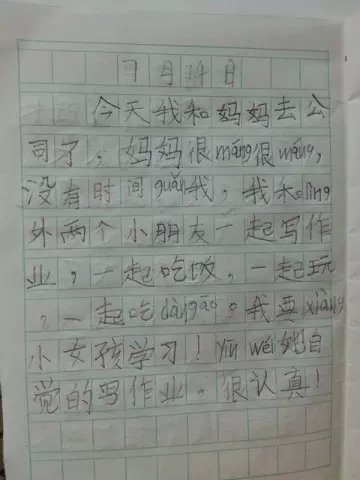 7月14日
今天我和妈妈去公
司了，妈妈很máng很máng，
没有时间guǎn我，我和lìng
外两个小朋友一起写作
业，一起吃饭，一起玩
，一起吃dàng高。我要xiàng
小女孩学习！yīn wèi她自
觉的写作业，很认真！